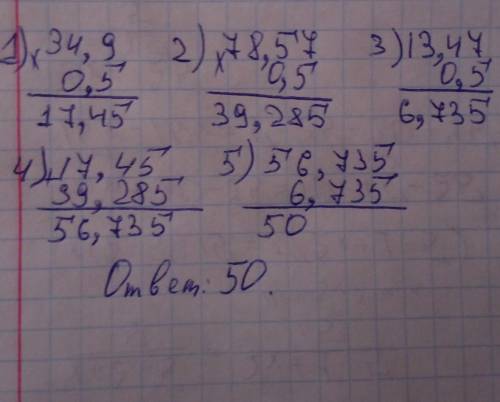 1) × 34,9 2) × 78,57 3) 13,47
0,5 0,5 0,5
17,45 39,285 6,735
4) 17,45 5) 56,735
39,285 6,735
56,735 50
Ответ: 50.